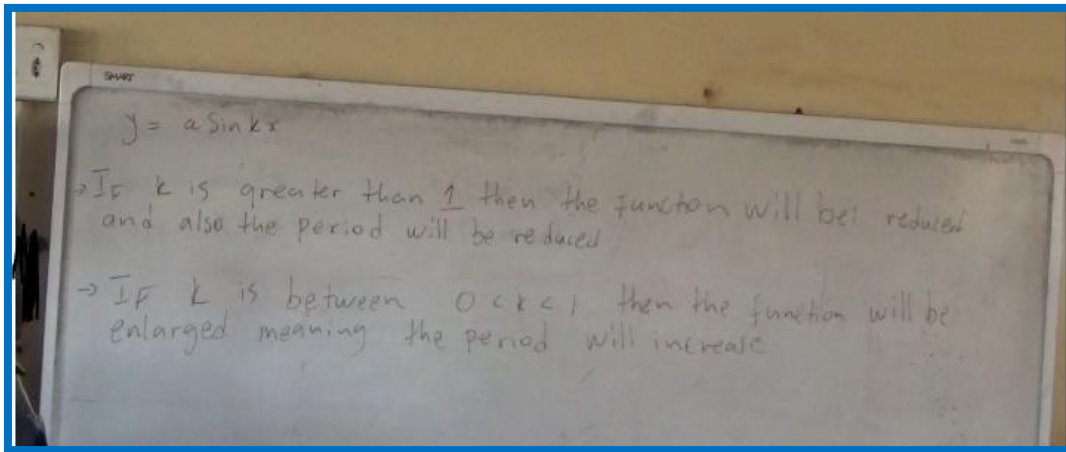 SMART
y = a Sin k x
→ IF k is greater than 1 then the function will be: reduced
and also the period will be reduced
→ IF k is between 0 < k < 1 then the function will be
enlarged meaning the period will increase